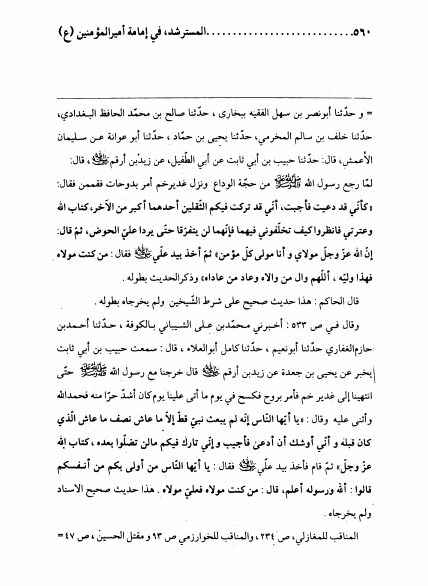 ٥٦٠..............................المسترشد، في إمامة أميرالمؤمنين (ع)
= و حدّثنا أبونصر بن سهل الفقيه ببخارى ، حدّثنا صالح بن محمّد الحافظ البغدادي،
حدّثنا خلف بن سالم المخرمي، حدّثنا يحيى بن حمّاد ، حدّثنا أبو عوانة عن سليمان
الأعمش، قال: حدّثنا حبيب بن أبي ثابت عن أبي الطفيل، عن زيدبن أرقم ، قال:
لمّا رجع رسول الله ﷺ من حجّة الوداع ونزل غديرخم أمر بدوحات فقممن فقال:
«كأنّي قد دعيت فأجبت، أنّي قد تركت فيكم الثقلين أحدهما أكبر من الآخر، كتاب الله
وعترتي فانظروا كيف تخلّفوني فيهما فإنّهما لن يتفرّقا حتّى يردا عليّ الحوض، ثمّ قال:
إنّ الله عزّ وجلّ مولاي و أنا مولى كلّ مؤمن» ثمّ أخذ بيد عليّ فقال : من كنت مولاه
فهذا وليّه ، أللّهم وال من والاه وعاد من عاداه» وذكرالحديث بطوله .
قال الحاكم : هذا حديث صحيح على شرط الشيخين ولم يخرجاه بطوله .
وقال في ص ٥٣٣ : أخبرني محمّدبن على الشيباني بالكوفة ، حدّثنا أحمدبن
حازم الغفاري حدّثنا أبونعيم ، حدّثنا كامل أبوالعلاء ، قال : سمعت حبيب بن أبي ثابت
يخبر عن يحيى بن جعدة عن زيدبن أرقم قال خرجنا مع رسول الله ﷺ حتّى
انتهينا إلى غدير خم فأمر بروح فكسح في يوم ما أتى علينا يوم كان أشدّ حرّا منه فحمدالله
وأثنى عليه وقال : «يا أيّها النّاس إنّه لم يبعث نبيّ قطّ إلاّ ما عاش نصف ما عاش الّذي
كان قبله و أنّي أوشك أن أدعىٰ فأجيب و إنّي تارك فيكم مالن تضلّوا بعده ، كتاب الله
عزّ وجلّ» ثمّ قام فأخذ بيد عليّ فقال : يا أيّها النّاس من أولى بكم من أنفسكم
قالوا : ألله ورسوله أعلم، قال : من كنت مولاه فعليّ مولاه . هذا حديث صحيح الاسناد
ولم يخرجاه .
المناقب للمغازلي، ص ٢٣٤ ، والمناقب للخوارزمي ص ٩٣ و مقتل الحسين ، ص ٤٧ =